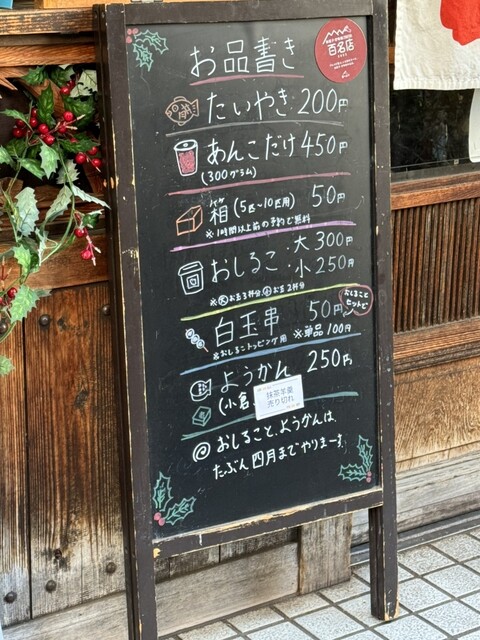 お品書き
百名店
たいやき 200円
あんこだけ 450円
(300グラム)
箱(5匹〜10匹用) 50円
※1時間以上前の予約で無料
おしるこ・大300円
・小250円
※大お玉3杯分、小お玉2杯分
おしること
セットで
白玉串 50円
※おしるこトッピング用 ※単品100円
ようかん 250円
(小倉、
抹茶羊羹
売り切れ
◎おしること、ようかんは、
たぶん四月までやりまーす。